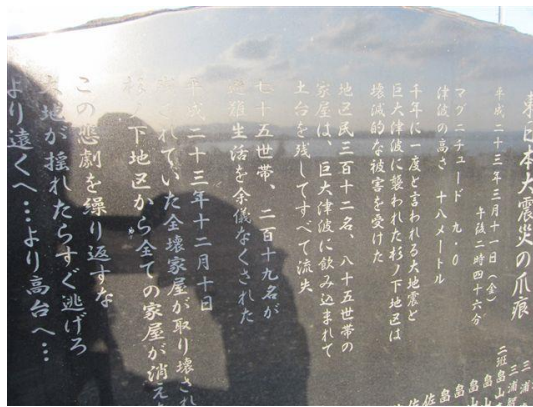 東日本大震災の爪痕
平成二十三年三月十一日(金)
午後二時四十六分
マグニチュード 九.〇
津波の高さ 十八メートル
千年に一度と言われる大地震と
巨大津波に襲われた杉ノ下地区は
壊滅的な被害を受けた
地区民三百十二名、八十五世帯の
家屋は、巨大津波に飲み込まれて
土台を残してすべて流失
七十五世帯、二百十九名が
避難生活を余儀なくされた
平成二十三年十二月十日
されていた全壊家屋が取り壊され
杉ノ下地区から全ての家屋が消え
この悲劇を繰り返すな
大地が揺れたらすぐ逃げろ
より遠くへ…より高台へ…
三浦
二班 畠山
畠山
畠
畠
佐
佐